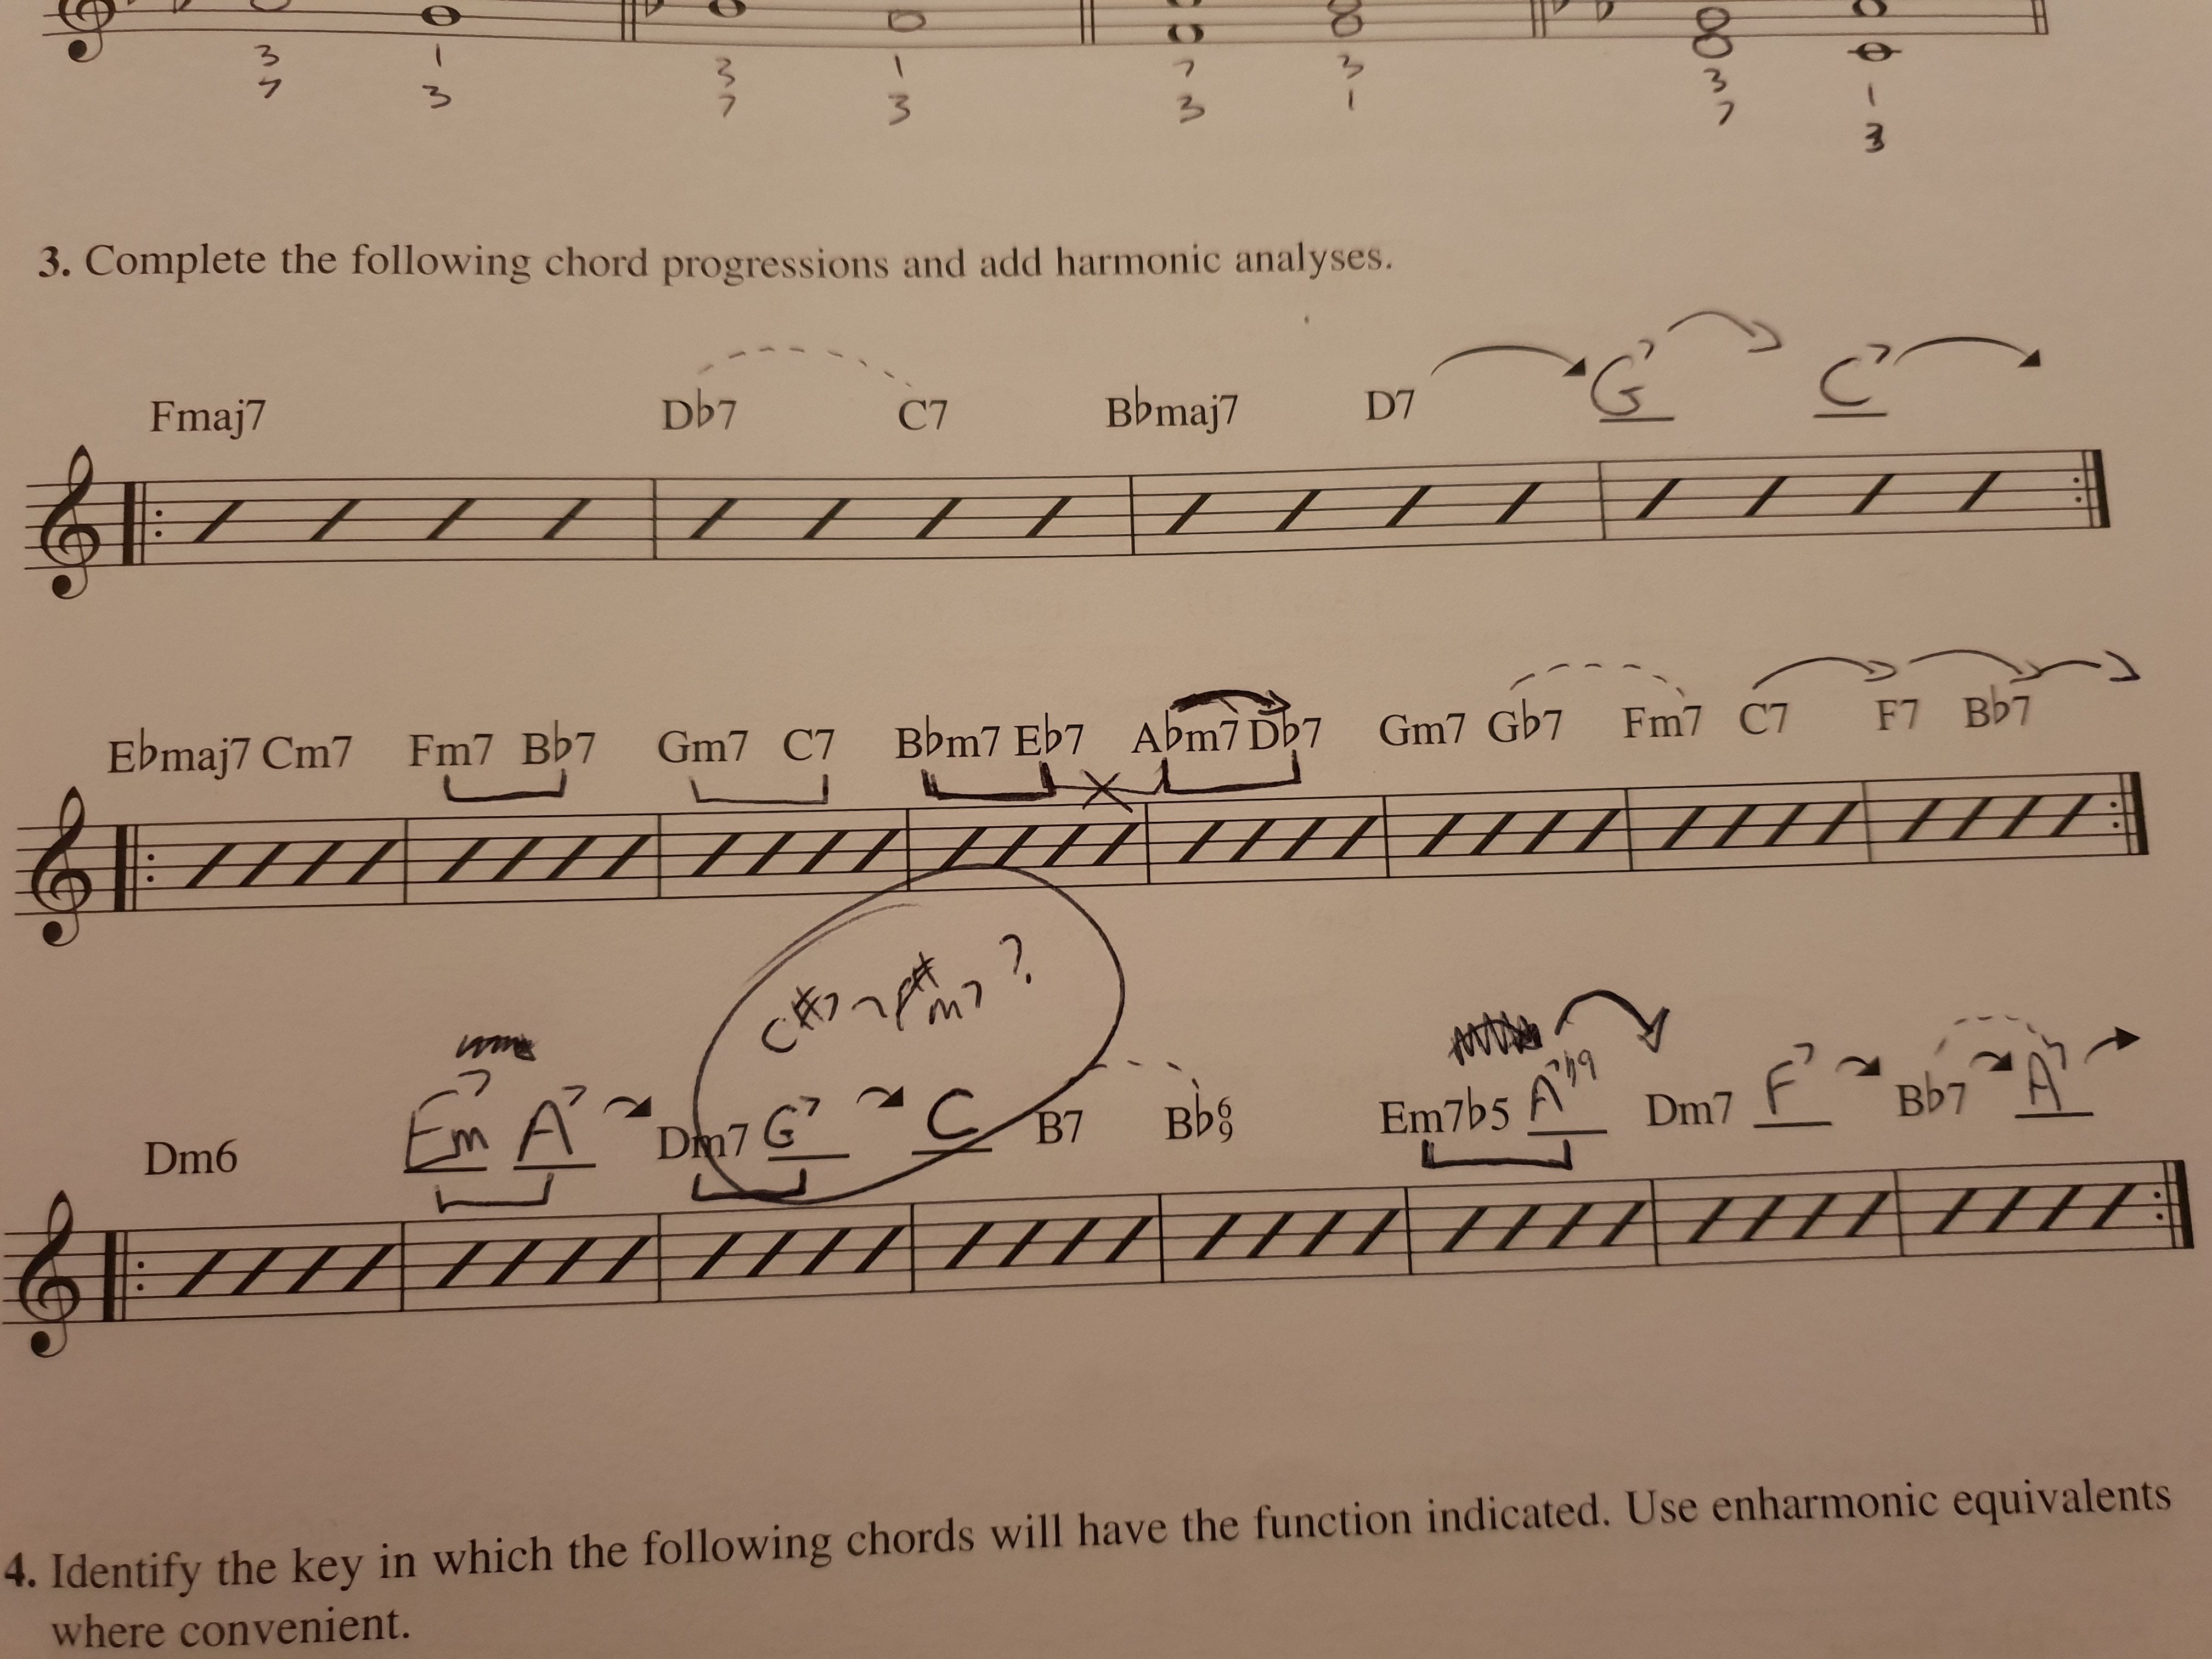 3 1 3 1 7 3 3 1
7 3 7 3 3 1 7 3
3. Complete the following chord progressions and add harmonic analyses.
Fmaj7 D♭7 C7 B♭maj7 D7 G7 C7
E♭maj7 Cm7 Fm7 B♭7 Gm7 C7 B♭m7 E♭7 A♭m7 D♭7 Gm7 G♭7 Fm7 C7 F7 B♭7
C#7 F#m7 ?
Dm6 Em7 A7 Dm7 G7 C B7 B♭6/9 Em7♭5 A7♭9 Dm7 F7 B♭7 A7
4. Identify the key in which the following chords will have the function indicated. Use enharmonic equivalents
where convenient.